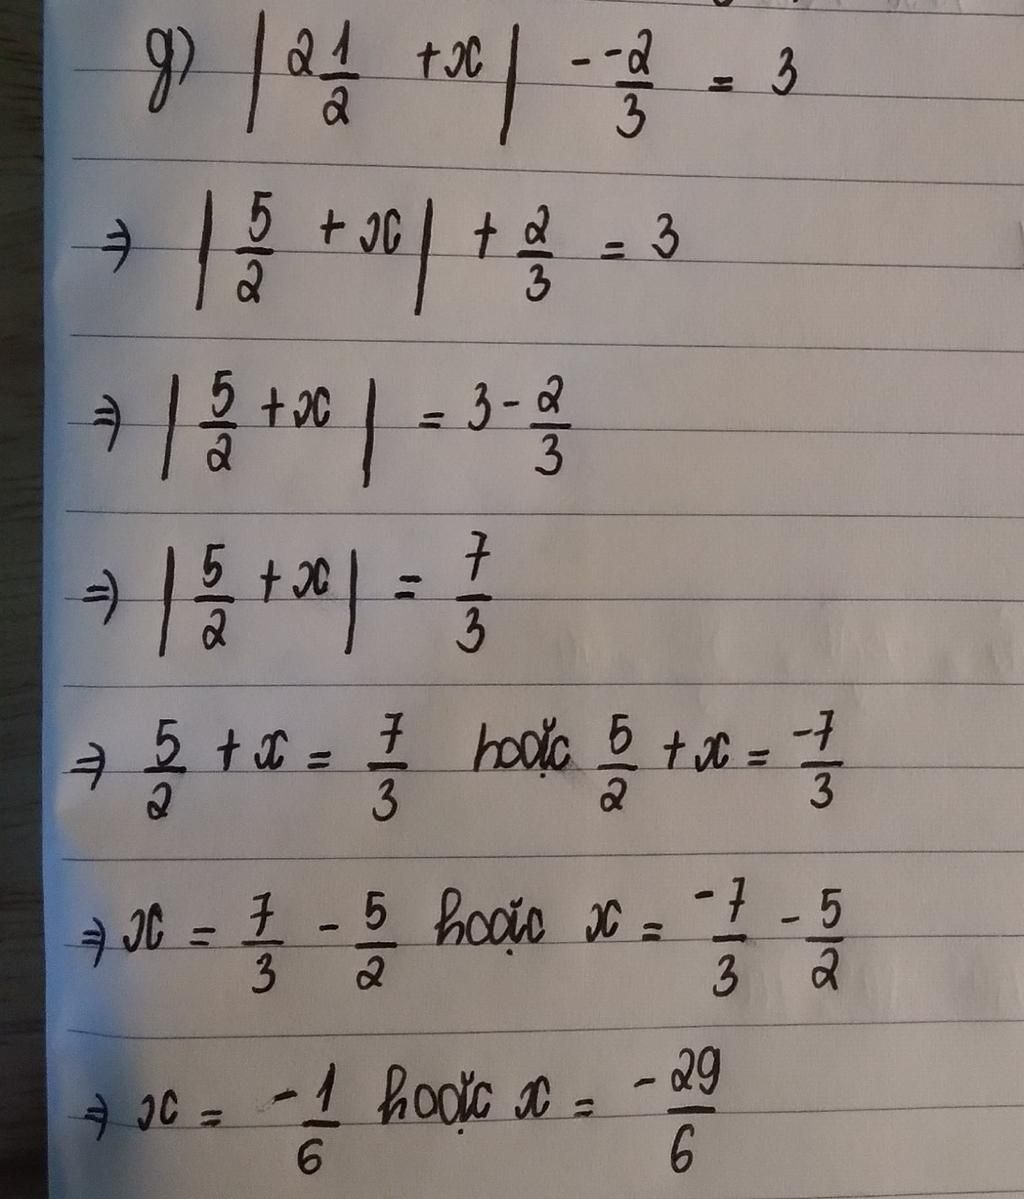 g) | 2 1/2 + x | - -2/3 = 3
⇒ | 5/2 + x | + 2/3 = 3
⇒ | 5/2 + x | = 3 - 2/3
⇒ | 5/2 + x | = 7/3
⇒ 5/2 + x = 7/3 hoặc 5/2 + x = -7/3
⇒ x = 7/3 - 5/2 hoặc x = -7/3 - 5/2
⇒ x = -1/6 hoặc x = -29/6